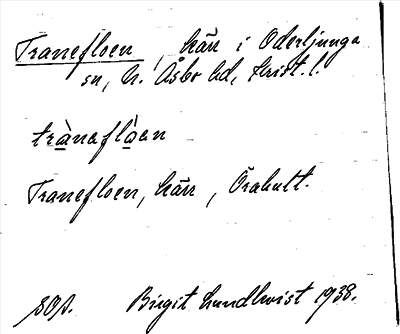 Tranefloen, kärr i Oderljunga
sn, N. Åsbo hd, Krist. l.
trànaflòen
Tranefloen, kärr, Örahult.
SOA. Birgit Lundkvist 1938.